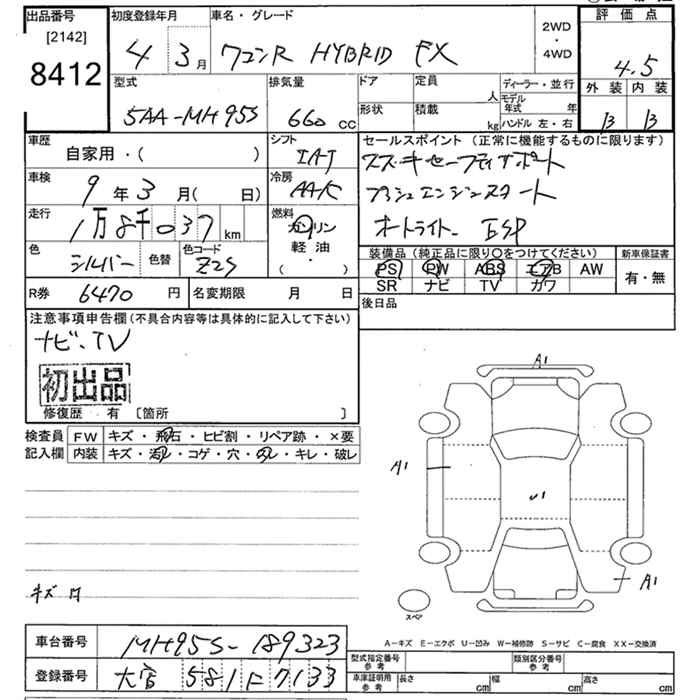 出品番号 初度登録年月 車名・グレード 評価点
[2142] 4年 3月 ワゴンR HYBRID FX 2WD・4WD 4.5
8412
型式 排気量 ドア 定員 人 ディーラー・並行 外装 内装
5AA-MH95S 660 cc 形状 積載 kg モデル年式 年 B B
ハンドル 左・右
車歴 シフト セールスポイント (正常に機能するものに限ります)
自家用・( ) IAT スズキセーフティサポート
車検 9年 3月( 日) 冷房 AAC プッシュエンジンスタート
走行 1万8千037 km 燃料 ガソリン オートライト ESP
軽油
・
( )
色 シルバー 色替 色コード Z2S 装備品 (純正品に限り○をつけてください) 新車保証書
PS PW ABS エアB AW 有・無
SR ナビ TV カワ
R券 6470円 名変期限 月 日 後日品
注意事項申告欄(不具合内容等は具体的に記入して下さい)
ナビ・TV
初出品
修復歴 有 [箇所 ]
検査員 FW キズ・飛石・ヒビ割・リペア跡・×要
記入欄 内装 キズ・汚レ・コゲ・穴・スレ・キレ・破レ
A1
A1
A1
スペア
キズ
A-キズ E-エクボ U-凹み W-補修跡 S-サビ C-腐食 XX-交換済
車台番号 MH95S-189323 型式指定番号 参考 類別区分番号 参考
登録番号 581 7133 車庫証明用 参考 長さ cm 幅 cm 高さ cm